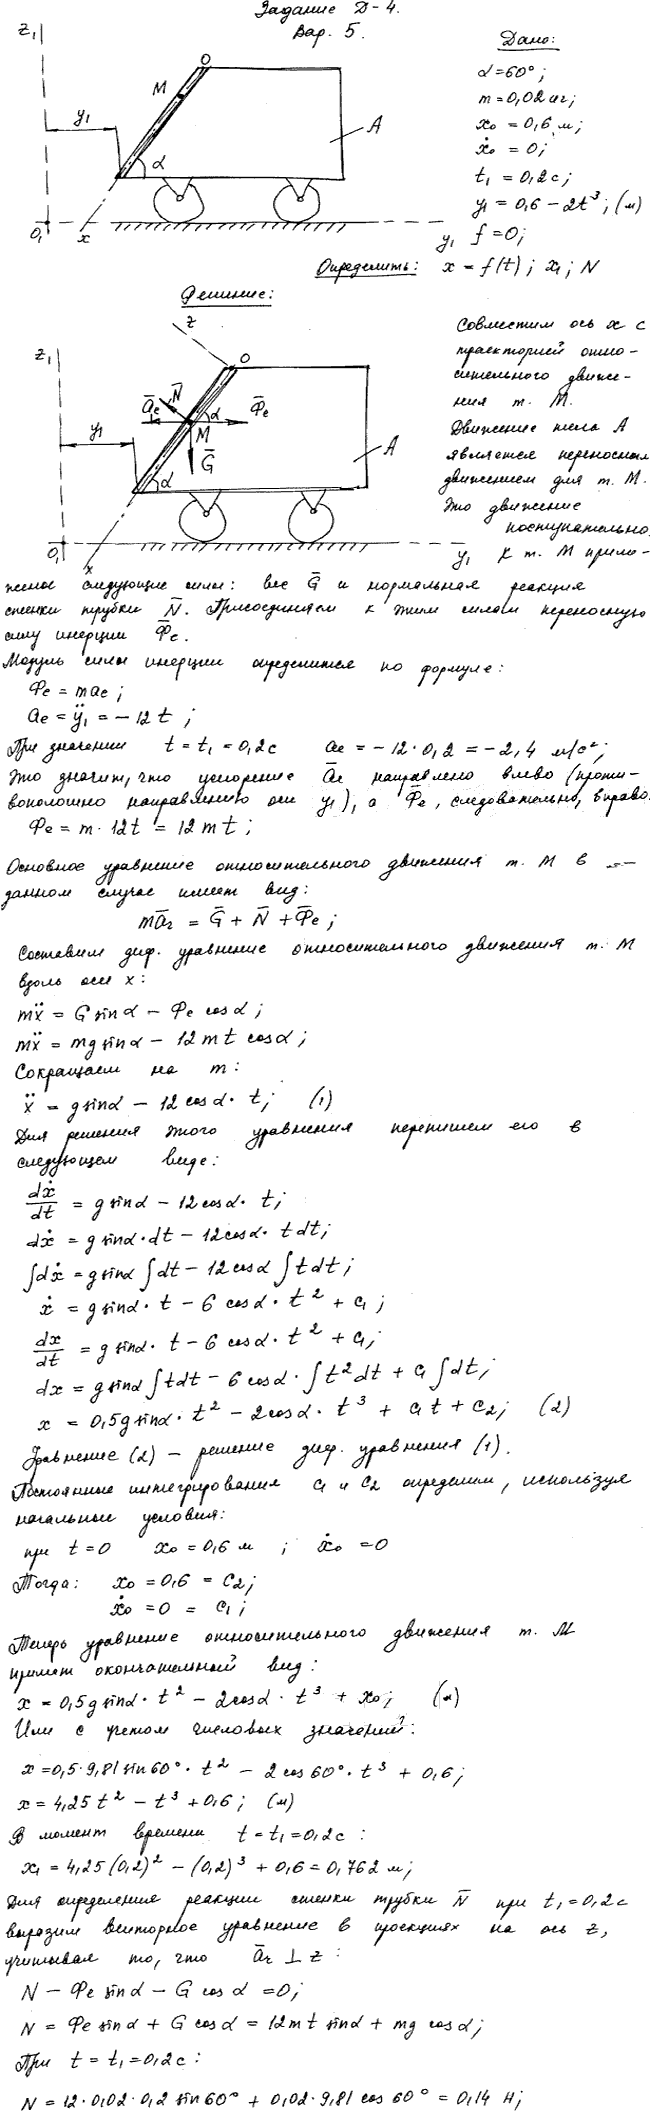 Задание Д-4.
Вар. 5.
Дано:
α=60°;
m=0,02 кг;
x₀=0,6 м;
ẋ₀=0;
t₁=0,2с;
y₁=0,6-2t³; (м)
f=0;
Определить: x=f(t); x₁; N
z₁
y₁
M
O
α
A
O₁
x
y₁
Решение:
z
z₁
O
N̄
āe
α
Φ̄e
M
y₁
Ḡ
α
A
O₁
x
y₁
Совместим ось x с
траекторией отно-
сительного движе-
ния т. М.
Движение тела А
является переносным
движением для т. М.
Это движение
поступательно.
К т. М прило-
жены следующие силы: вес Ḡ и нормальная реакция
стенки трубки N̄. Присоединяем к этим силам переносную
силу инерции Φ̄e.
Модуль силы инерции определится по формуле:
Φe=mae;
ae=ÿ₁=-12t;
При значении t=t₁=0,2с ae=-12·0,2=-2,4 м/с²;
Это значит, что ускорение āe направлено влево (проти-
воположно направлению оси y₁), а Φ̄e, следовательно, вправо.
Φe=m·12t=12mt;
Основное уравнение относительного движения т. М в
данном случае имеет вид:
mār=Ḡ+N̄+Φ̄e;
Составим диф. уравнение относительного движения т. М
вдоль оси x:
mẍ=G sinα-Φe cosα;
mẍ=mg sinα-12mt cosα;
Сокращаем на m:
ẍ=g sinα-12cosα·t; (1)
Для решения этого уравнения перепишем его в
следующем виде:
dẋ/dt=g sinα-12cosα·t;
dẋ=g sinα·dt-12cosα·tdt;
∫dẋ=g sinα∫dt-12cosα∫tdt;
ẋ=g sinα·t-6cosα·t²+c₁;
dx/dt=g sinα·t-6cosα·t²+c₁;
dx=g sinα∫tdt-6cosα·∫t²dt+c₁∫dt;
x=0,5g sinα·t²-2cosα·t³+c₁t+c₂; (2)
Уравнение (2) - решение диф. уравнения (1).
Постоянные интегрирования c₁ и c₂ определим, используя
начальные условия:
при t=0 x₀=0,6 м ; ẋ₀=0
Тогда: x₀=0,6=c₂;
ẋ₀=0=c₁;
Теперь уравнение относительного движения т. М
примет окончательный вид:
x=0,5g sinα·t²-2cosα·t³+x₀; (м)
Или с учетом числовых значений:
x=0,5·9,81 sin60°·t²-2cos60°·t³+0,6;
x=4,25t²-t³+0,6; (м)
В момент времени t=t₁=0,2с:
x₁=4,25(0,2)²-(0,2)³+0,6=0,762 м;
Для определения реакции стенки трубки N̄ при t₁=0,2с
выразим векторное уравнение в проекциях на ось z,
учитывая то, что ār⊥z:
N-Φe sinα-G cosα=0;
N=Φe sinα+G cosα=12mt sinα+mg cosα;
При t=t₁=0,2с:
N=12·0,02·0,2 sin60°+0,02·9,81 cos60°=0,14 Н;